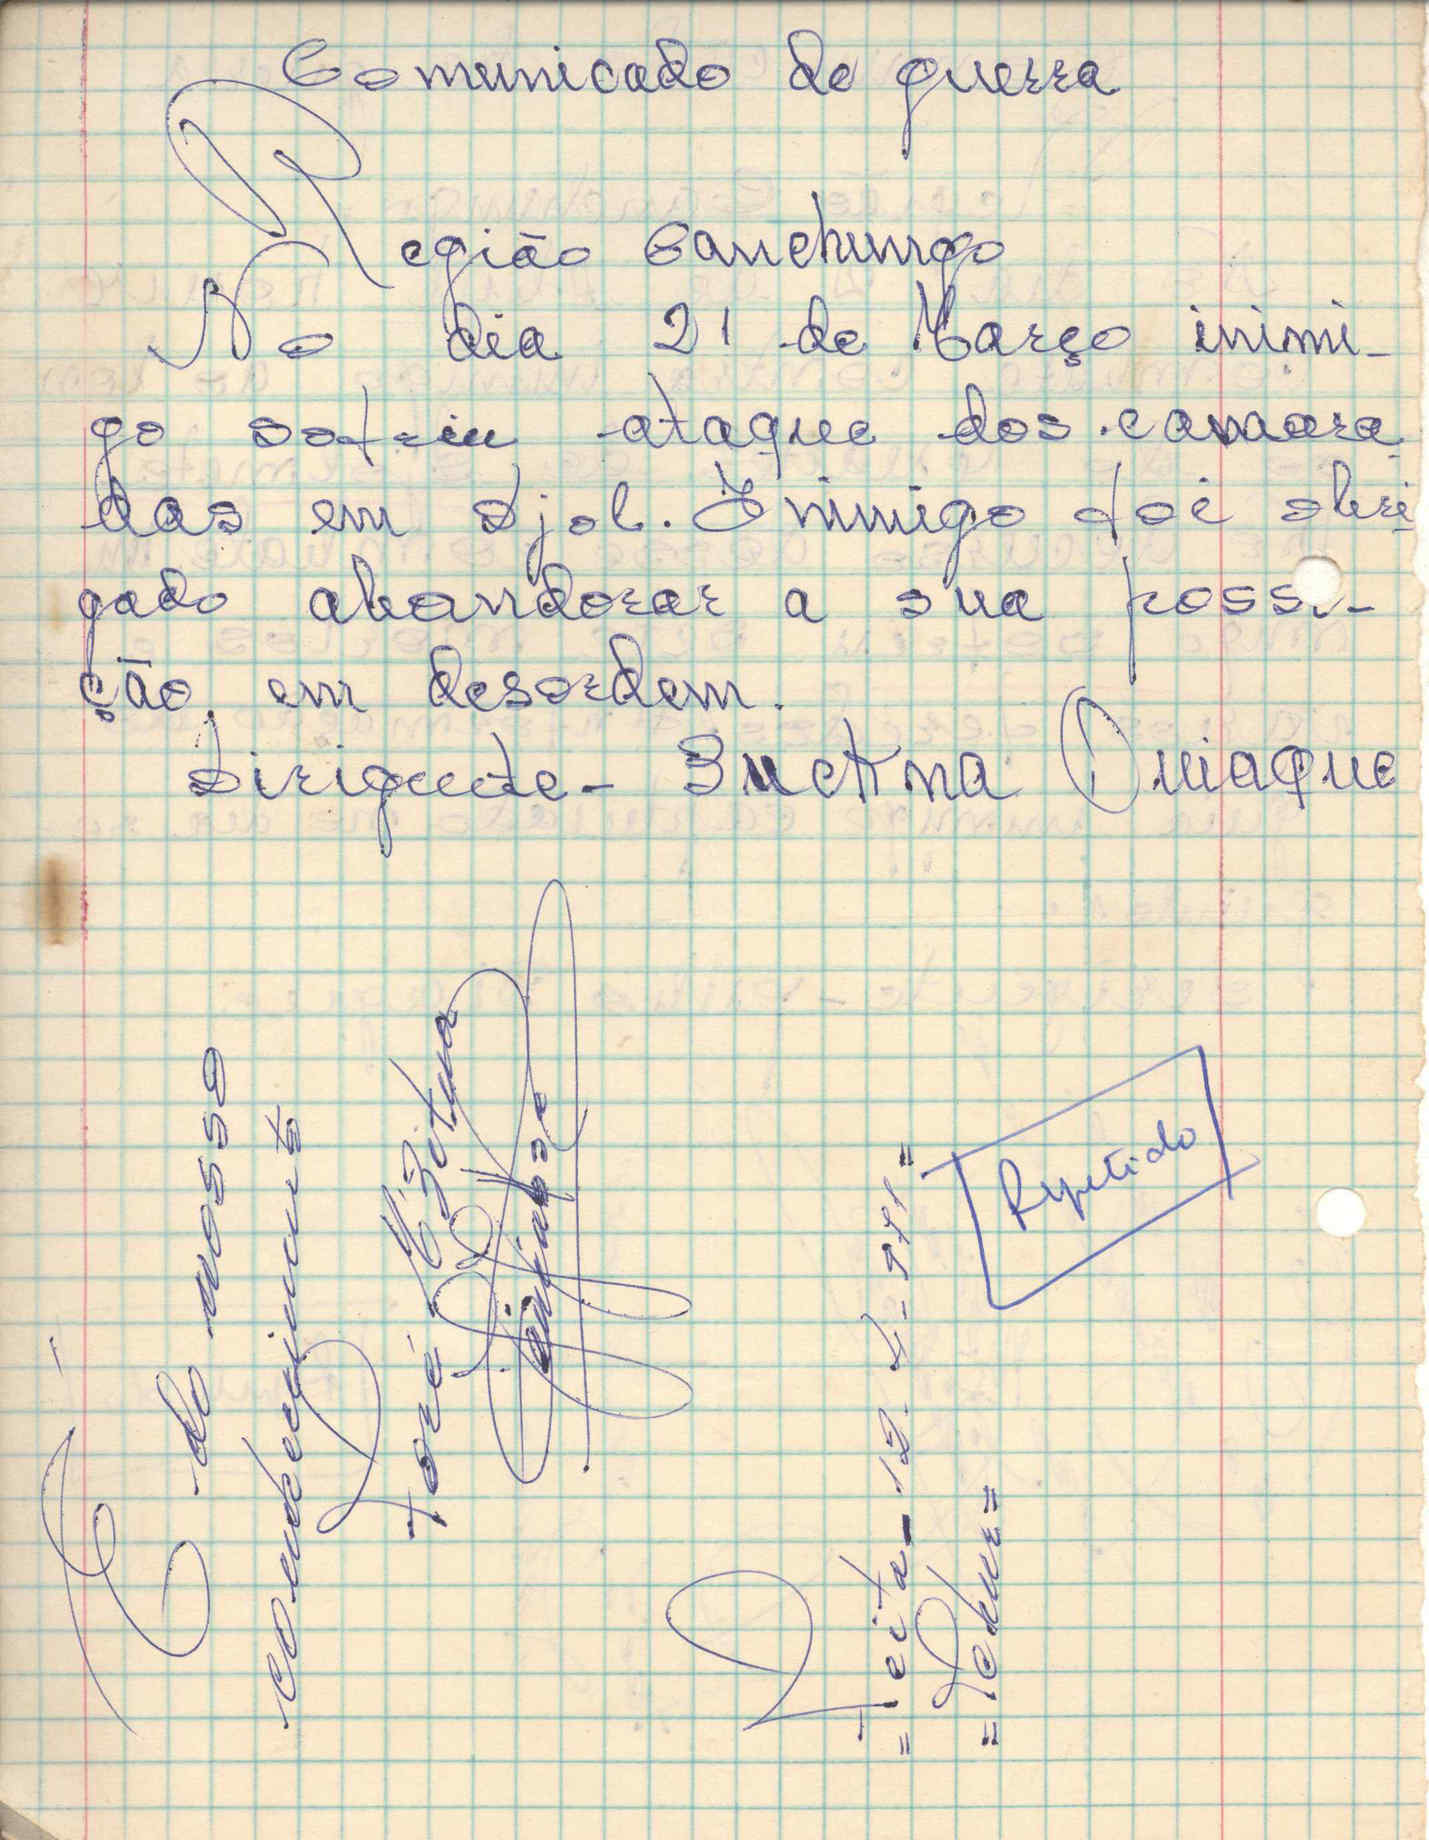 Comunicado de guerra
Região Canchungo
No dia 21 de Março inimi-
go sofreu ataque dos camara
das em Djol. Inimigo foi obri
gado abandorar a sua possi-
ção em desordem.
Dirigente- Buctna Quiaque
É do nosso
condecimento
José
=Feita-12-4-971=
=Pekur=
Repetido